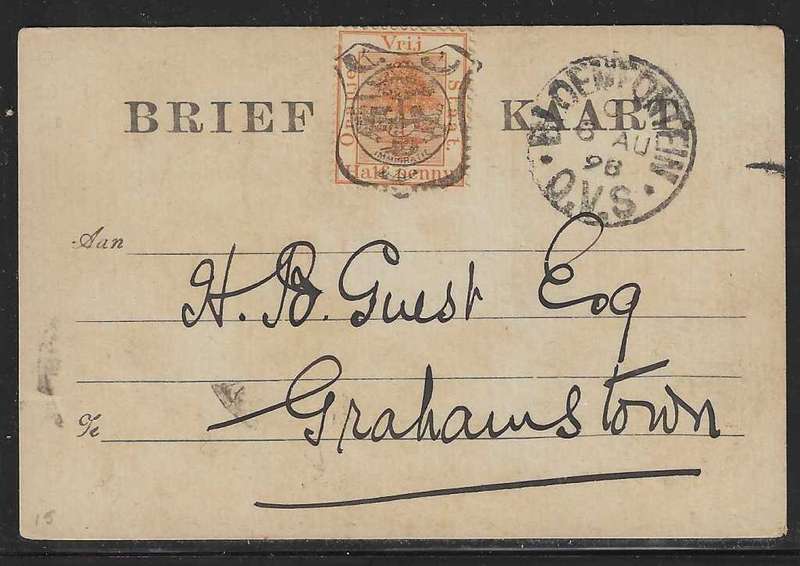 Vrij
Oranje
Staat
BRIEF KAART
IMMIGRATIE
Half penny
BLOEMFONTEIN
C
6 AU
98
O.V.S.
Aan
H. B. Guest Esq
Te
Grahamstown
15